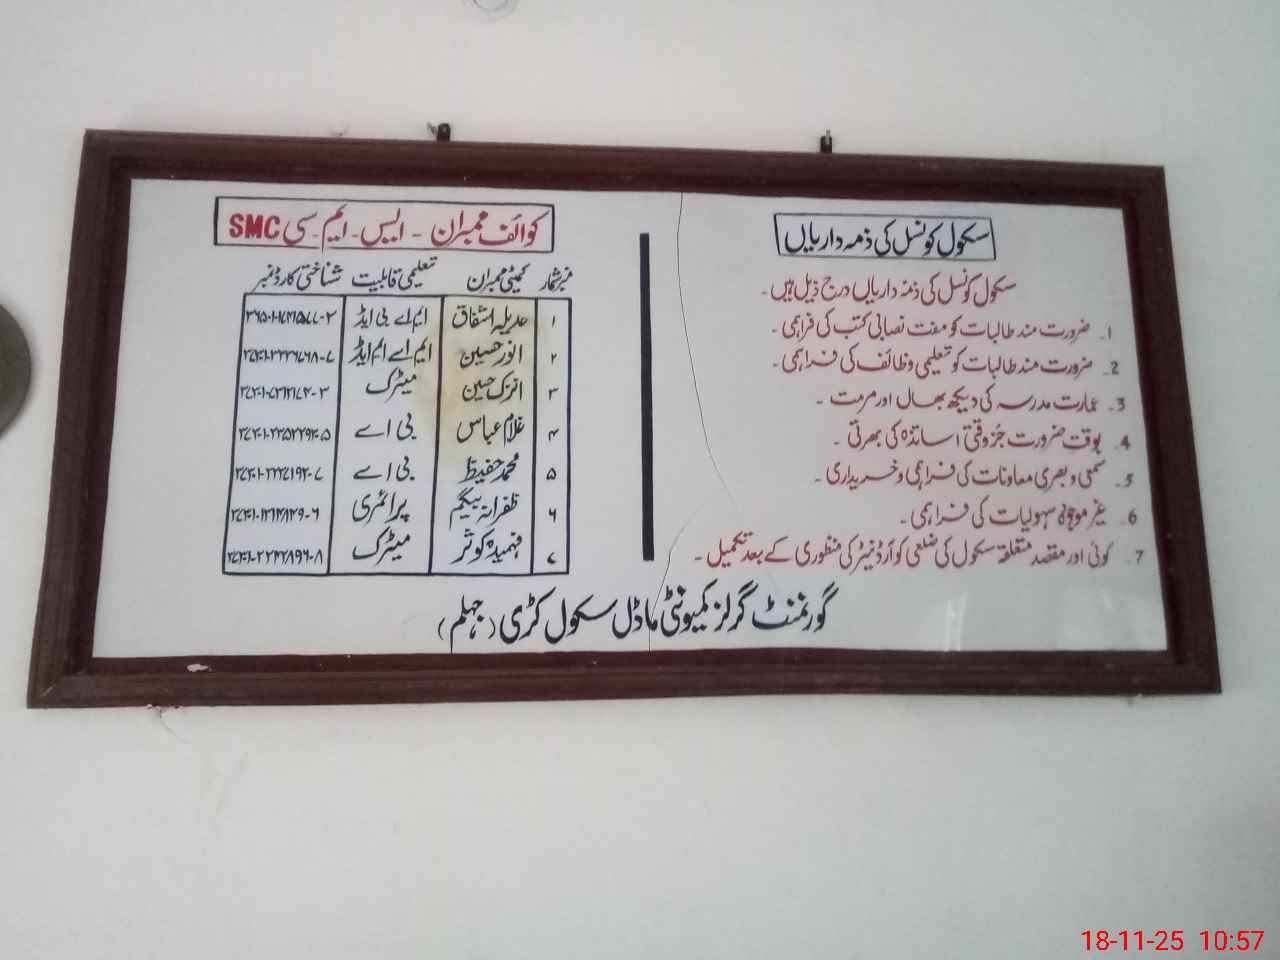 سکول کونسل کی ذمہ داریاں
سکول کونسل کی ذمہ داریاں درج ذیل ہیں۔
1۔ ضرورت مند طالبات کو مفت نصابی کتب کی فراہمی۔
2۔ ضرورت مند طالبات کو تعلیمی وظائف کی فراہمی۔
3۔ عمارت مدرسہ کی دیکھ بھال اور مرمت ۔
4۔ بوقت ضرورت جزوقتی اساتذہ کی بھرتی ۔
5۔ سمعی و بصری معاونات کی فراہمی و خریداری۔
6۔ غیر موجودہ سہولیات کی فراہمی۔
7۔ کوئی اور مقصد متعلقہ سکول کی ضلعی کوآرڈنیٹر کی منظوری کے بعد تکمیل ۔
کوائف ممبران ۔ ایس۔ ایم۔ سی SMC
نمبر شمار کمیٹی ممبران تعلیمی قابلیت شناختی کارڈ نمبر
۱ عدیلہ اشفاق ایم اے بی ایڈ
۲ انور حسین ایم اے ایم ایڈ
۳ حسین میٹرک
۴ غلام عباس بی اے
۵ محمد حفیظ بی اے
۶ ظفرانہ بیگم پرائمری
۷ فہمیدہ کوثر میٹرک
گورنمنٹ گرلز کمیونٹی ماڈل سکول کڑی (جہلم)
18-11-25 10:57